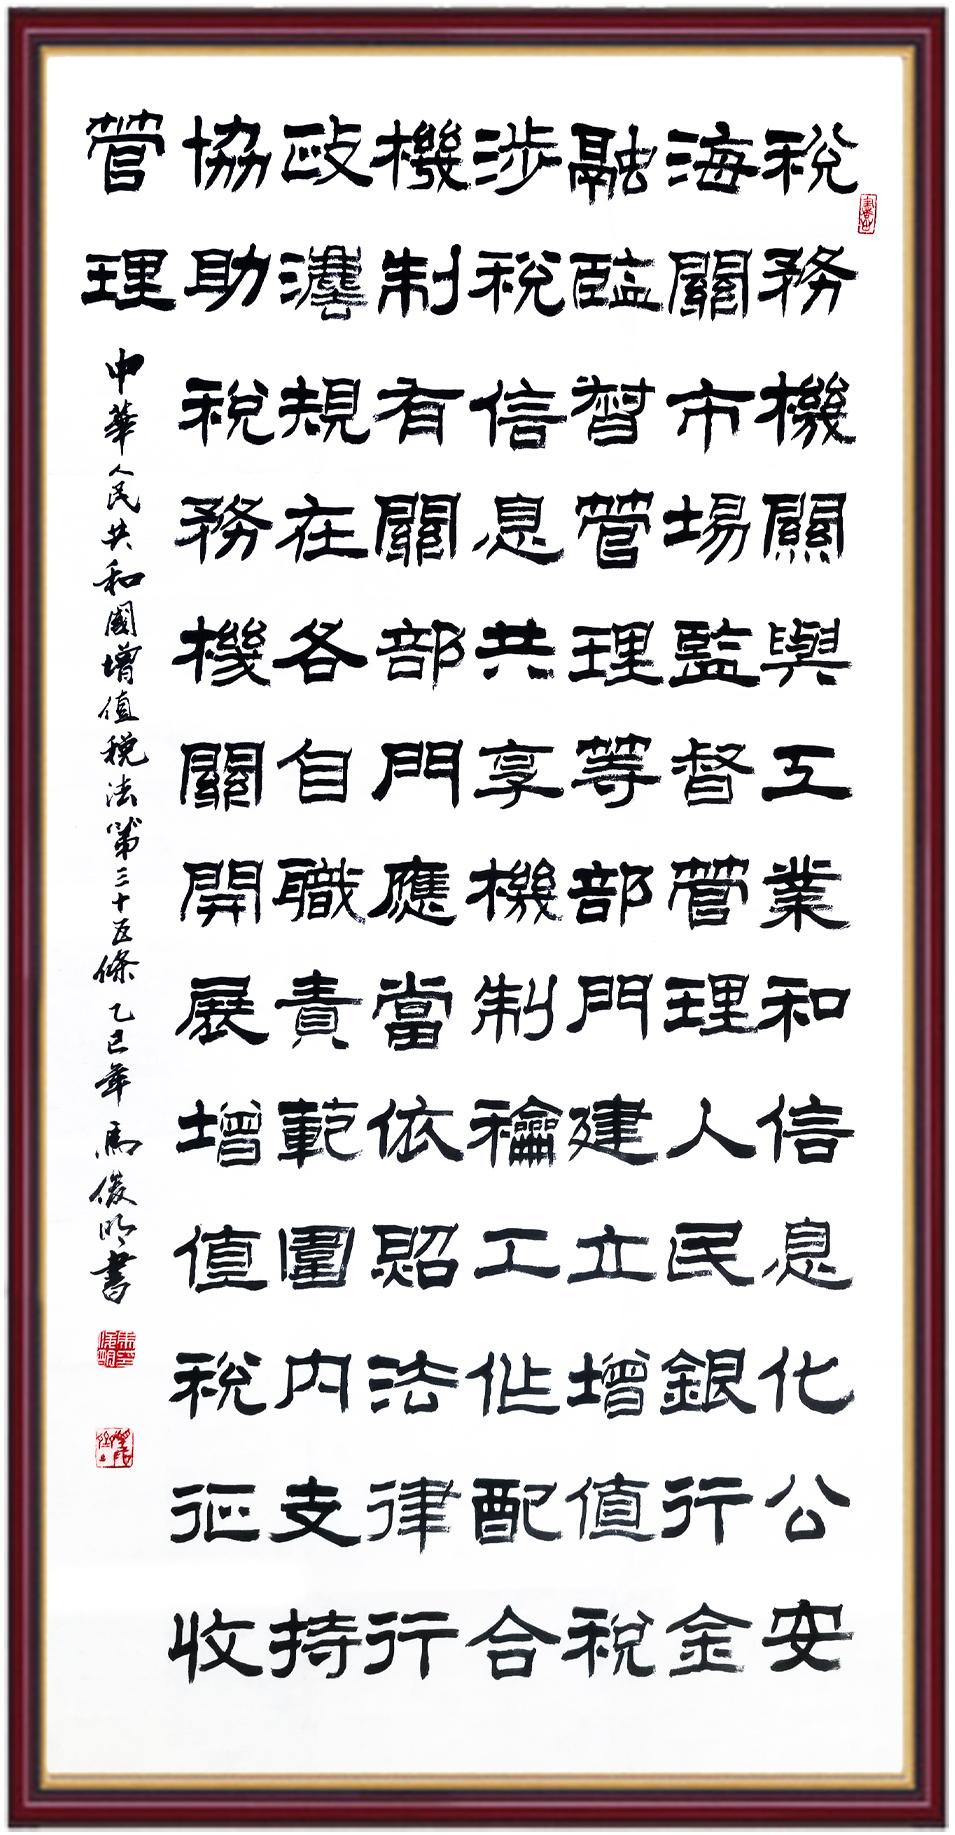 稅務機關與工業和信息化公安
海關市場監督管理人民銀行金
融監督管理等部門建立增值稅
涉稅信息共享機制龢工作配合
機制有關部門應當依照法律行
政灋規在各自職責範圍內支持
協助稅務機關開展增值稅征收
管理
中華人民共和國增值稅法第三十五條 乙巳年 馬俊明書